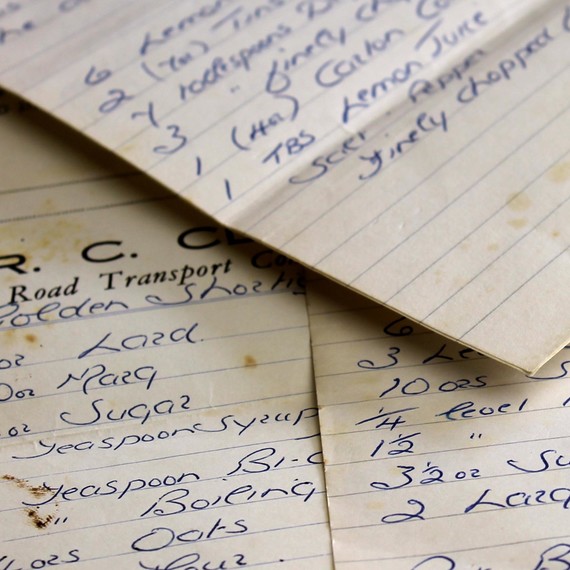 6 Lemon
2 (7oz) Tins
4 Tablespoons
3 " finely
1 (4oz) Carton
1 TBS Lemon Juice
Salt. Pepper
finely chopped
R. C. CL
Road Transport Co
Golden Shorties
oz Lard.
oz Marg
oz Sugar
Teaspoon Syrup
Teaspoon Bi-C
" Boiling
ozs Oats
Flour.
6
3 Le
10 ozs S
1/4 level
1 1/2 "
3 1/2 oz Su
2 Large